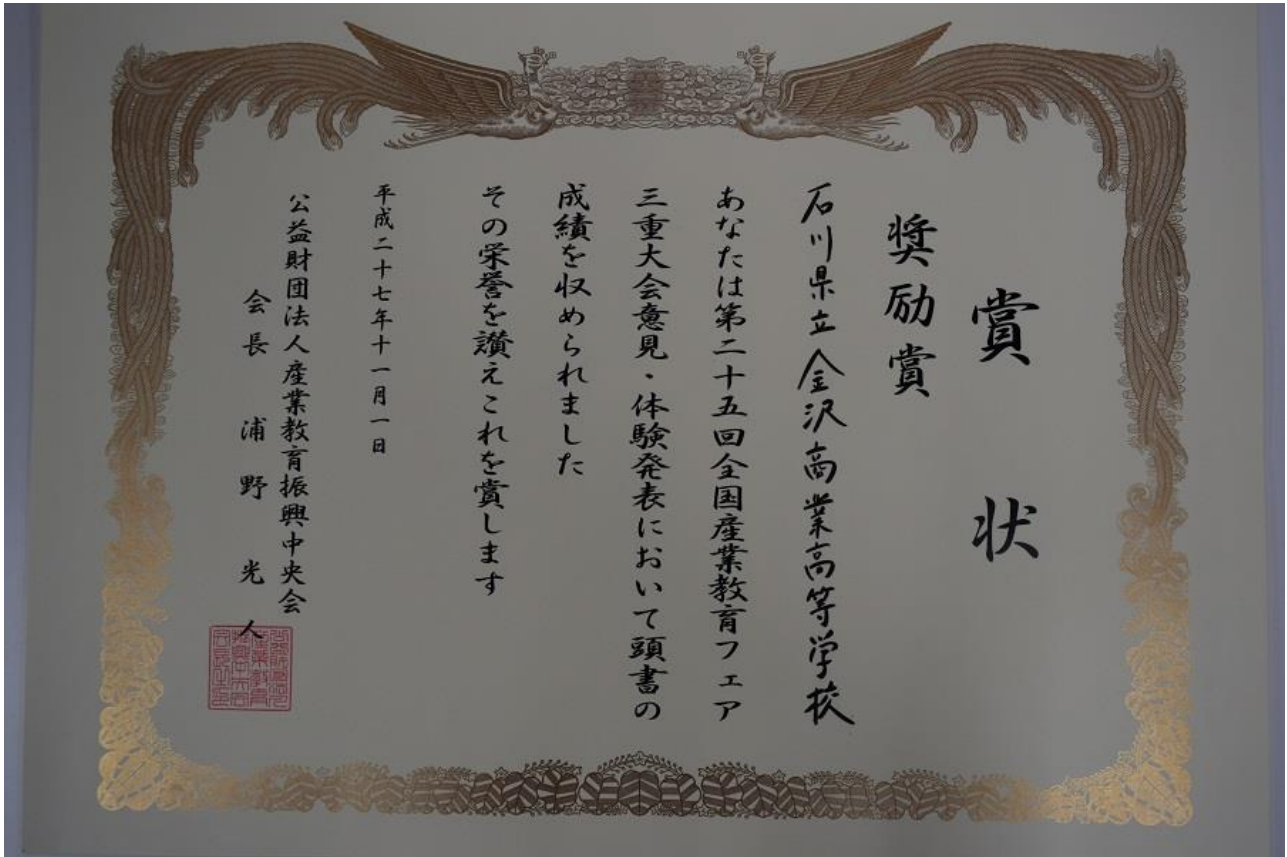 賞状
奨励賞
石川県立金沢商業高等学校
あなたは第二十五回全国産業教育フェア
三重大会意見・体験発表において頭書の
成績を収められました
その栄誉を讃えこれを賞します
平成二十七年十一月一日
公益財団法人産業教育振興中央会
会長 浦野光人